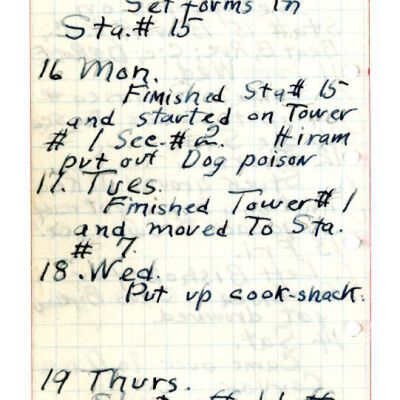 Set forms in
Sta.# 15
16 Mon.
Fimished Sta# 15
and started on Tower
# 1 Sec.#2. Hiram
put out Dog poison
17. Tues.
Fimished Tower# 1
and moved To Sta.
# 7.
18.Wed.
Put up cook-shack.
19 Thurs.